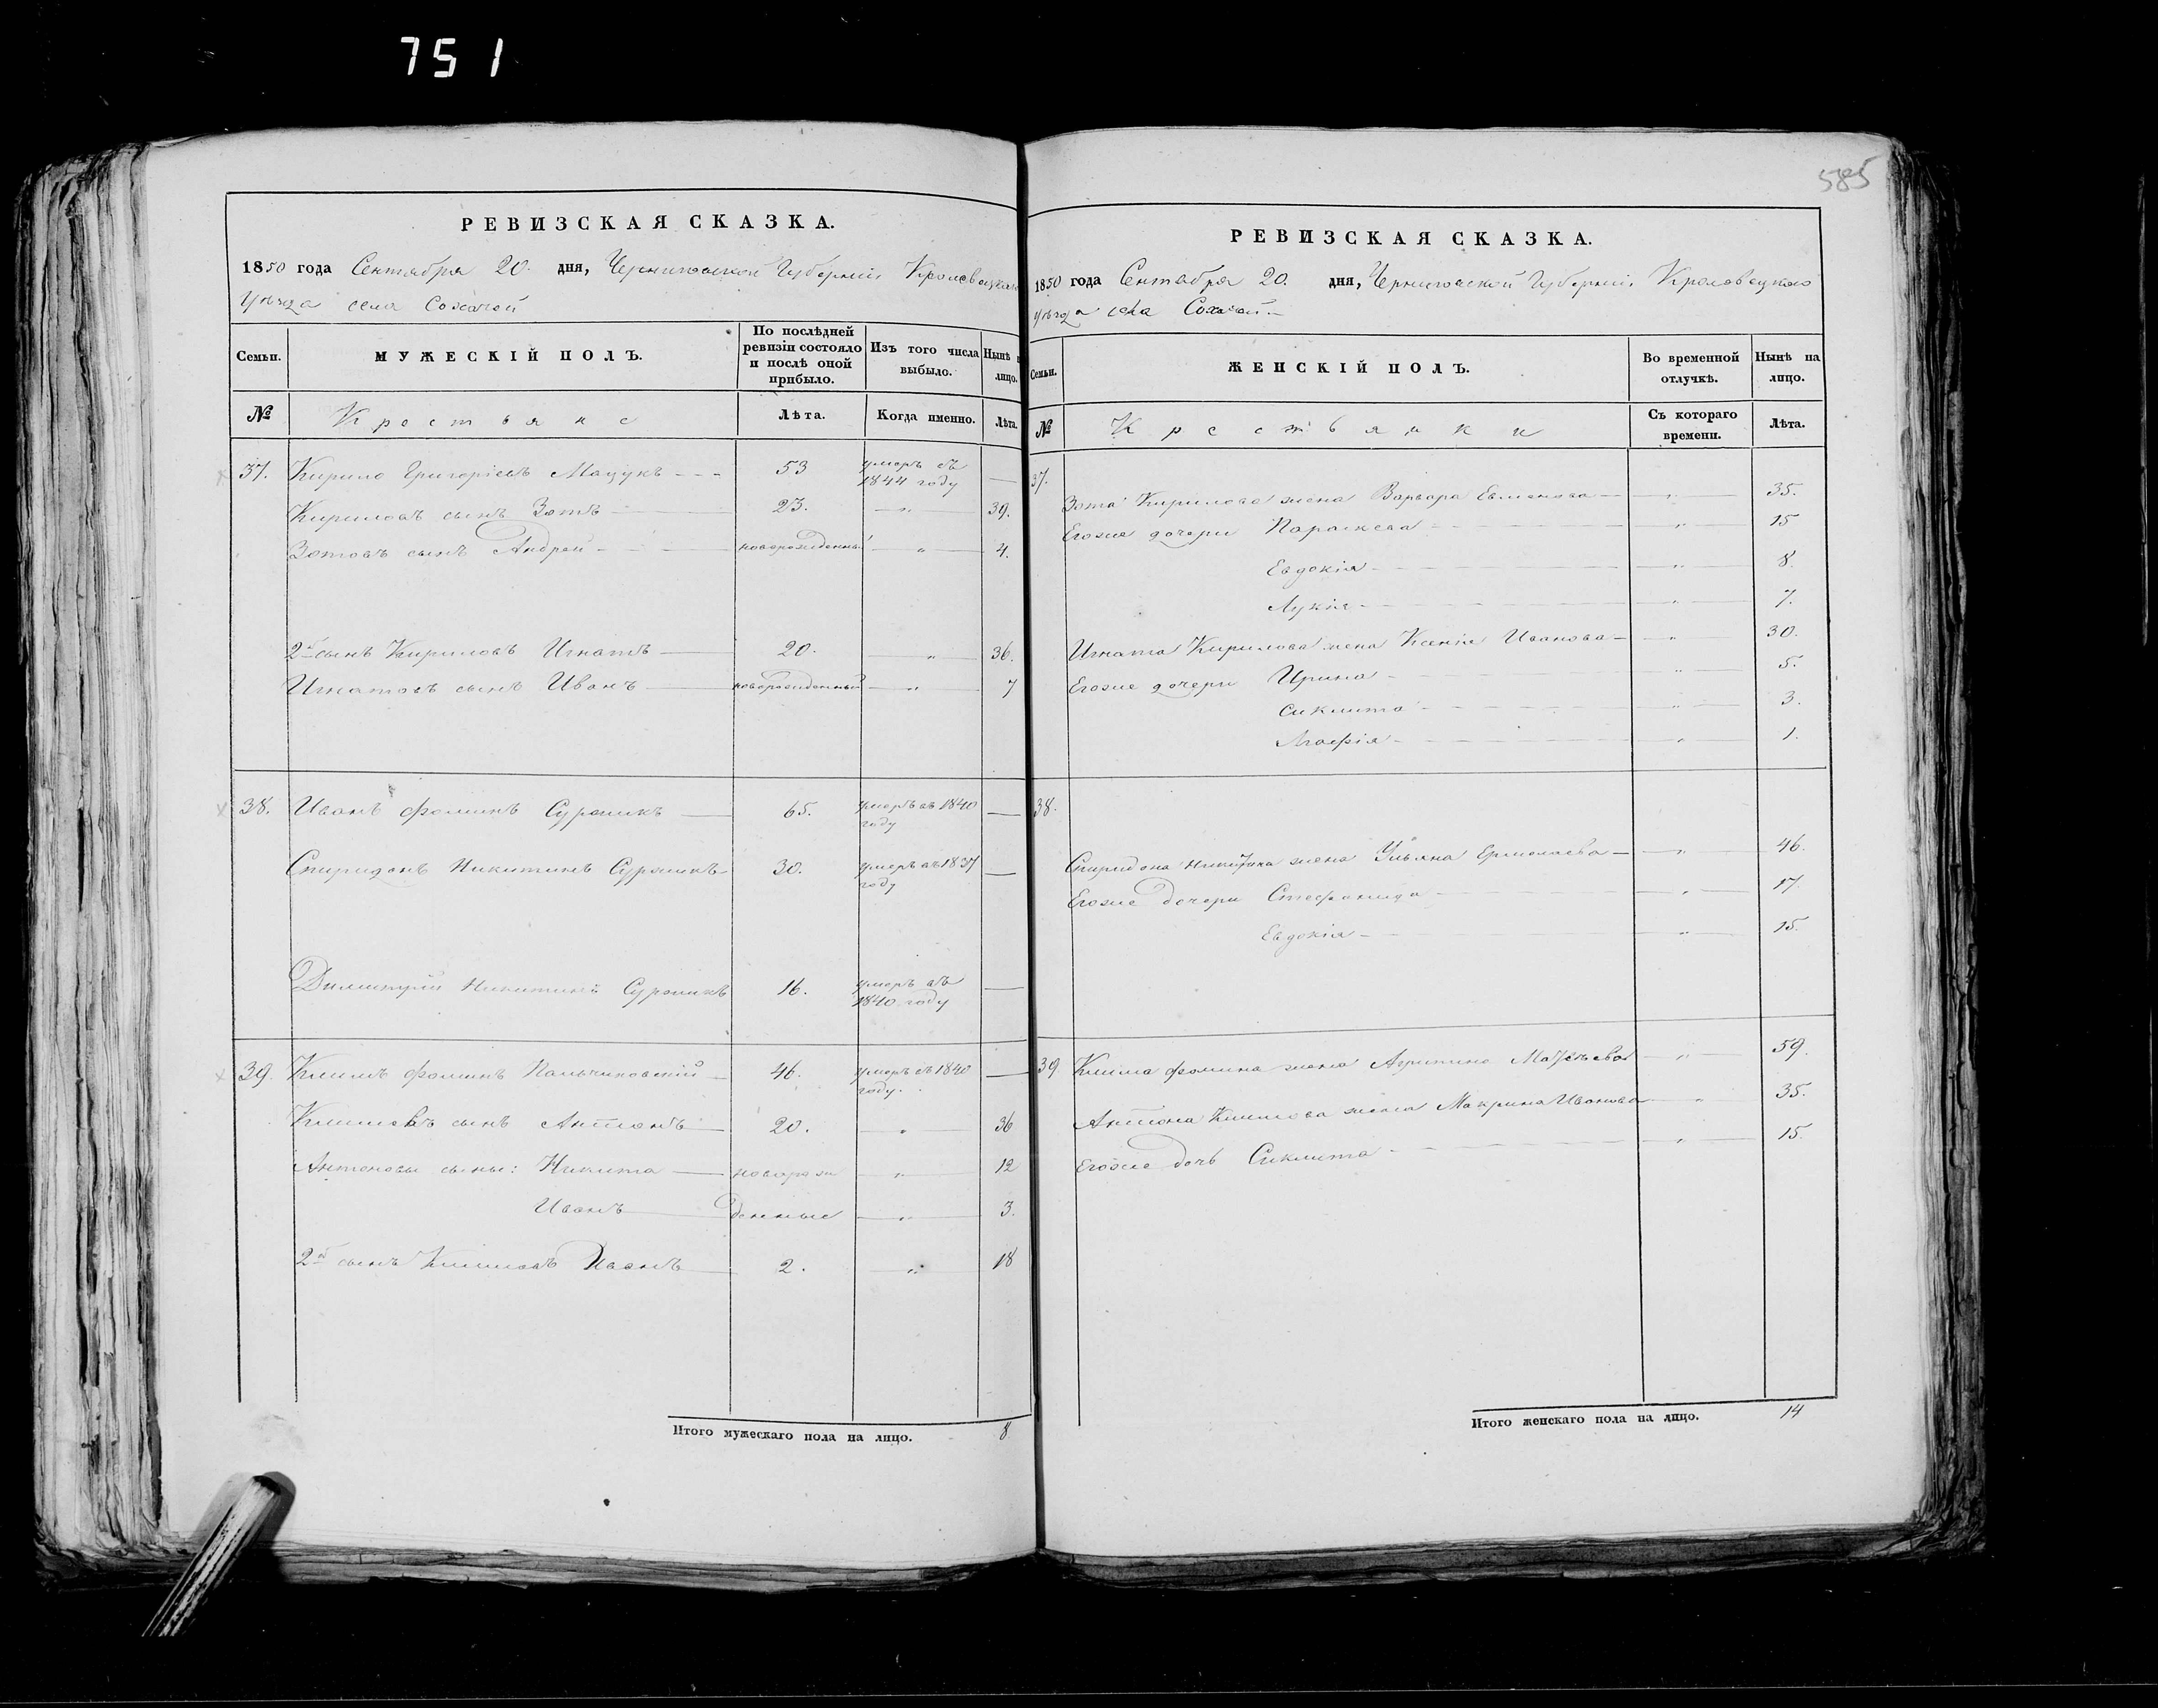 751
585
РЕВИЗСКАЯ СКАЗКА.
1850 года Сентября 20. дня, Черниговской Губерніи Кролевецкаго
уѣзда села Сохачой
Семьи.
МУЖЕСКІЙ ПОЛЪ.
По послѣдней ревизіи состояло и послѣ оной прибыло.
Изъ того числа выбыло.
Нынѣ на лицо.
№
Крестьяне
Лѣта.
Когда именно.
Лѣта.
37. Кирило Григоріевъ Мацукъ 53 умеръ въ 1844 году —
Кириловъ сынъ Зотъ 23. „ 39.
Зотовъ сынъ Андрей новорожденный „ 4.
2й сынъ Кириловъ Игнатъ 20. „ 36.
Игнатовъ сынъ Иванъ новорожденный „ 7
38. Иванъ Фоминъ 65. умеръ въ 1840 году —
Спиридонъ Никитинъ 30. умеръ въ 1837 году —
Димитрій Никитинъ 16. умеръ въ 1840 году —
39. Климъ Фоминъ Пальчиковскій 46. умеръ въ 1840 году. —
Климовъ сынъ Антонъ 20. „ 36
Антоновы сыны: Никита новорож „ 12
Иванъ денные „ 3.
2й сынъ Климовъ Иванъ 2. „ 18
Итого мужескаго пола на лицо. 8
РЕВИЗСКАЯ СКАЗКА.
1850 года Сентября 20. дня, Черниговской Губерніи Кролевецкаго
уѣзда села Сохачой
Семьи.
ЖЕНСКІЙ ПОЛЪ.
Во временной отлучкѣ.
Нынѣ на лицо.
№
Крестьянки
Съ котораго времени.
Лѣта.
37.
Зота Кирилова жена Варвара Евменова „ 35.
Егоже дочери Параскева „ 15
Евдокія „ 8.
Лукія „ 7.
Игната Кирилова жена Ксенія Иванова „ 30.
Егоже дочери Ирина „ 5.
Сиклита „ 3.
Агафія „ 1.
38.
Спиридона Никитина жена Ульяна Ермолаева „ 46.
Егоже дочери Стефанида „ 17.
Евдокія „ 15.
39 Климa Фомина жена Агрипина Матѳѣева „ 59.
Антона Климова жена Макрина Иванова „ 35.
Егоже дочь Сиклита „ 15.
Итого женскаго пола на лицо. 14